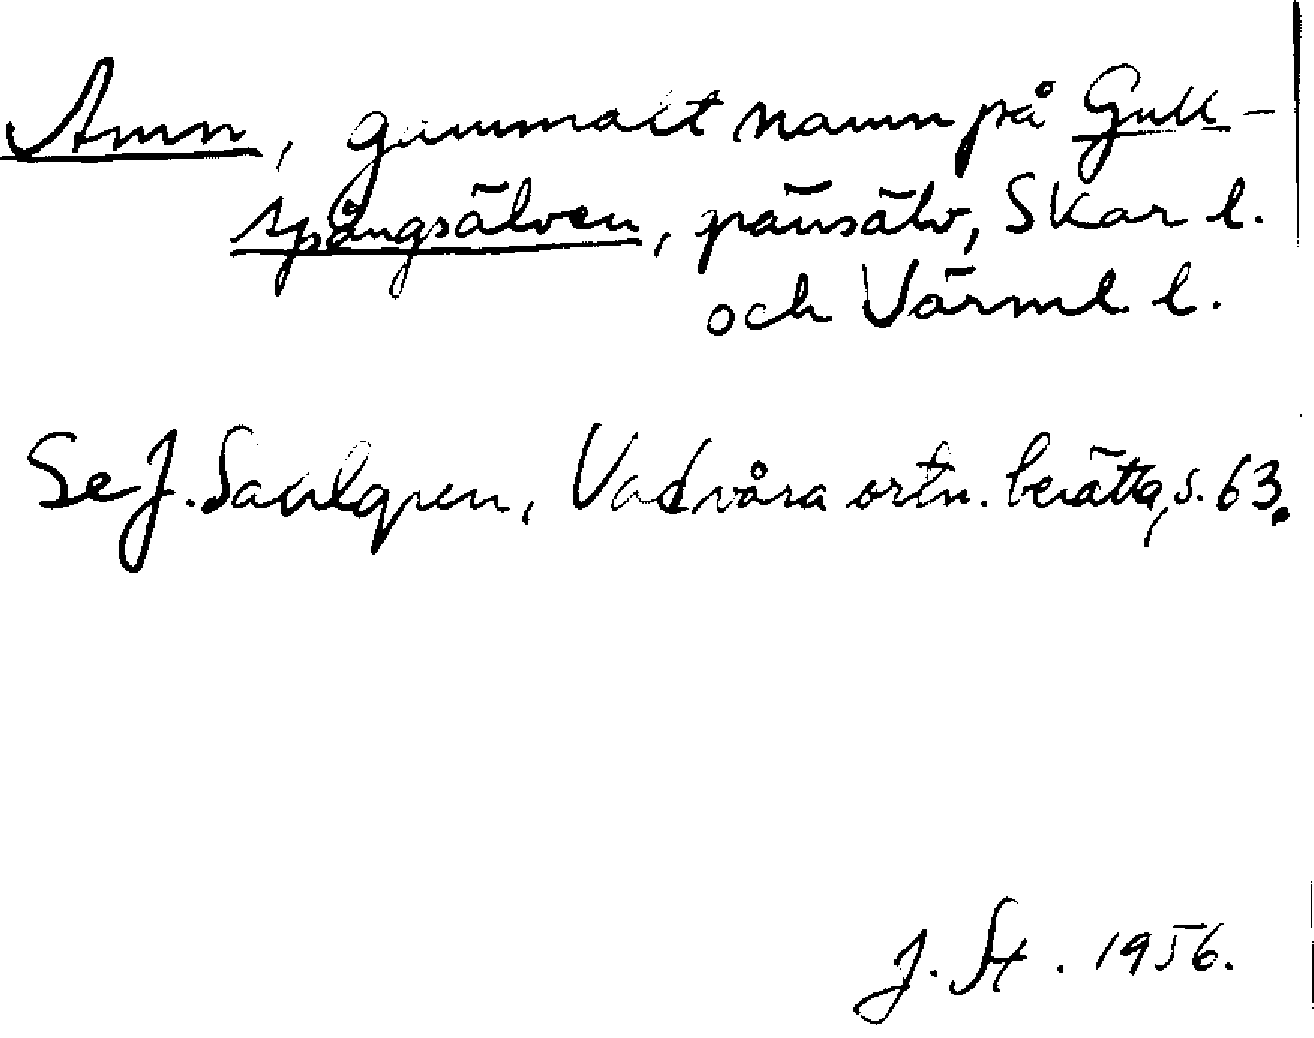 Amn, gammalt namn på Gull-
spångsälven, gränsälv, Skar l.
och Värml l.
Se J. Sahlgren, Vad våra ortn. berätta, s. 63.
J. St. 1956.